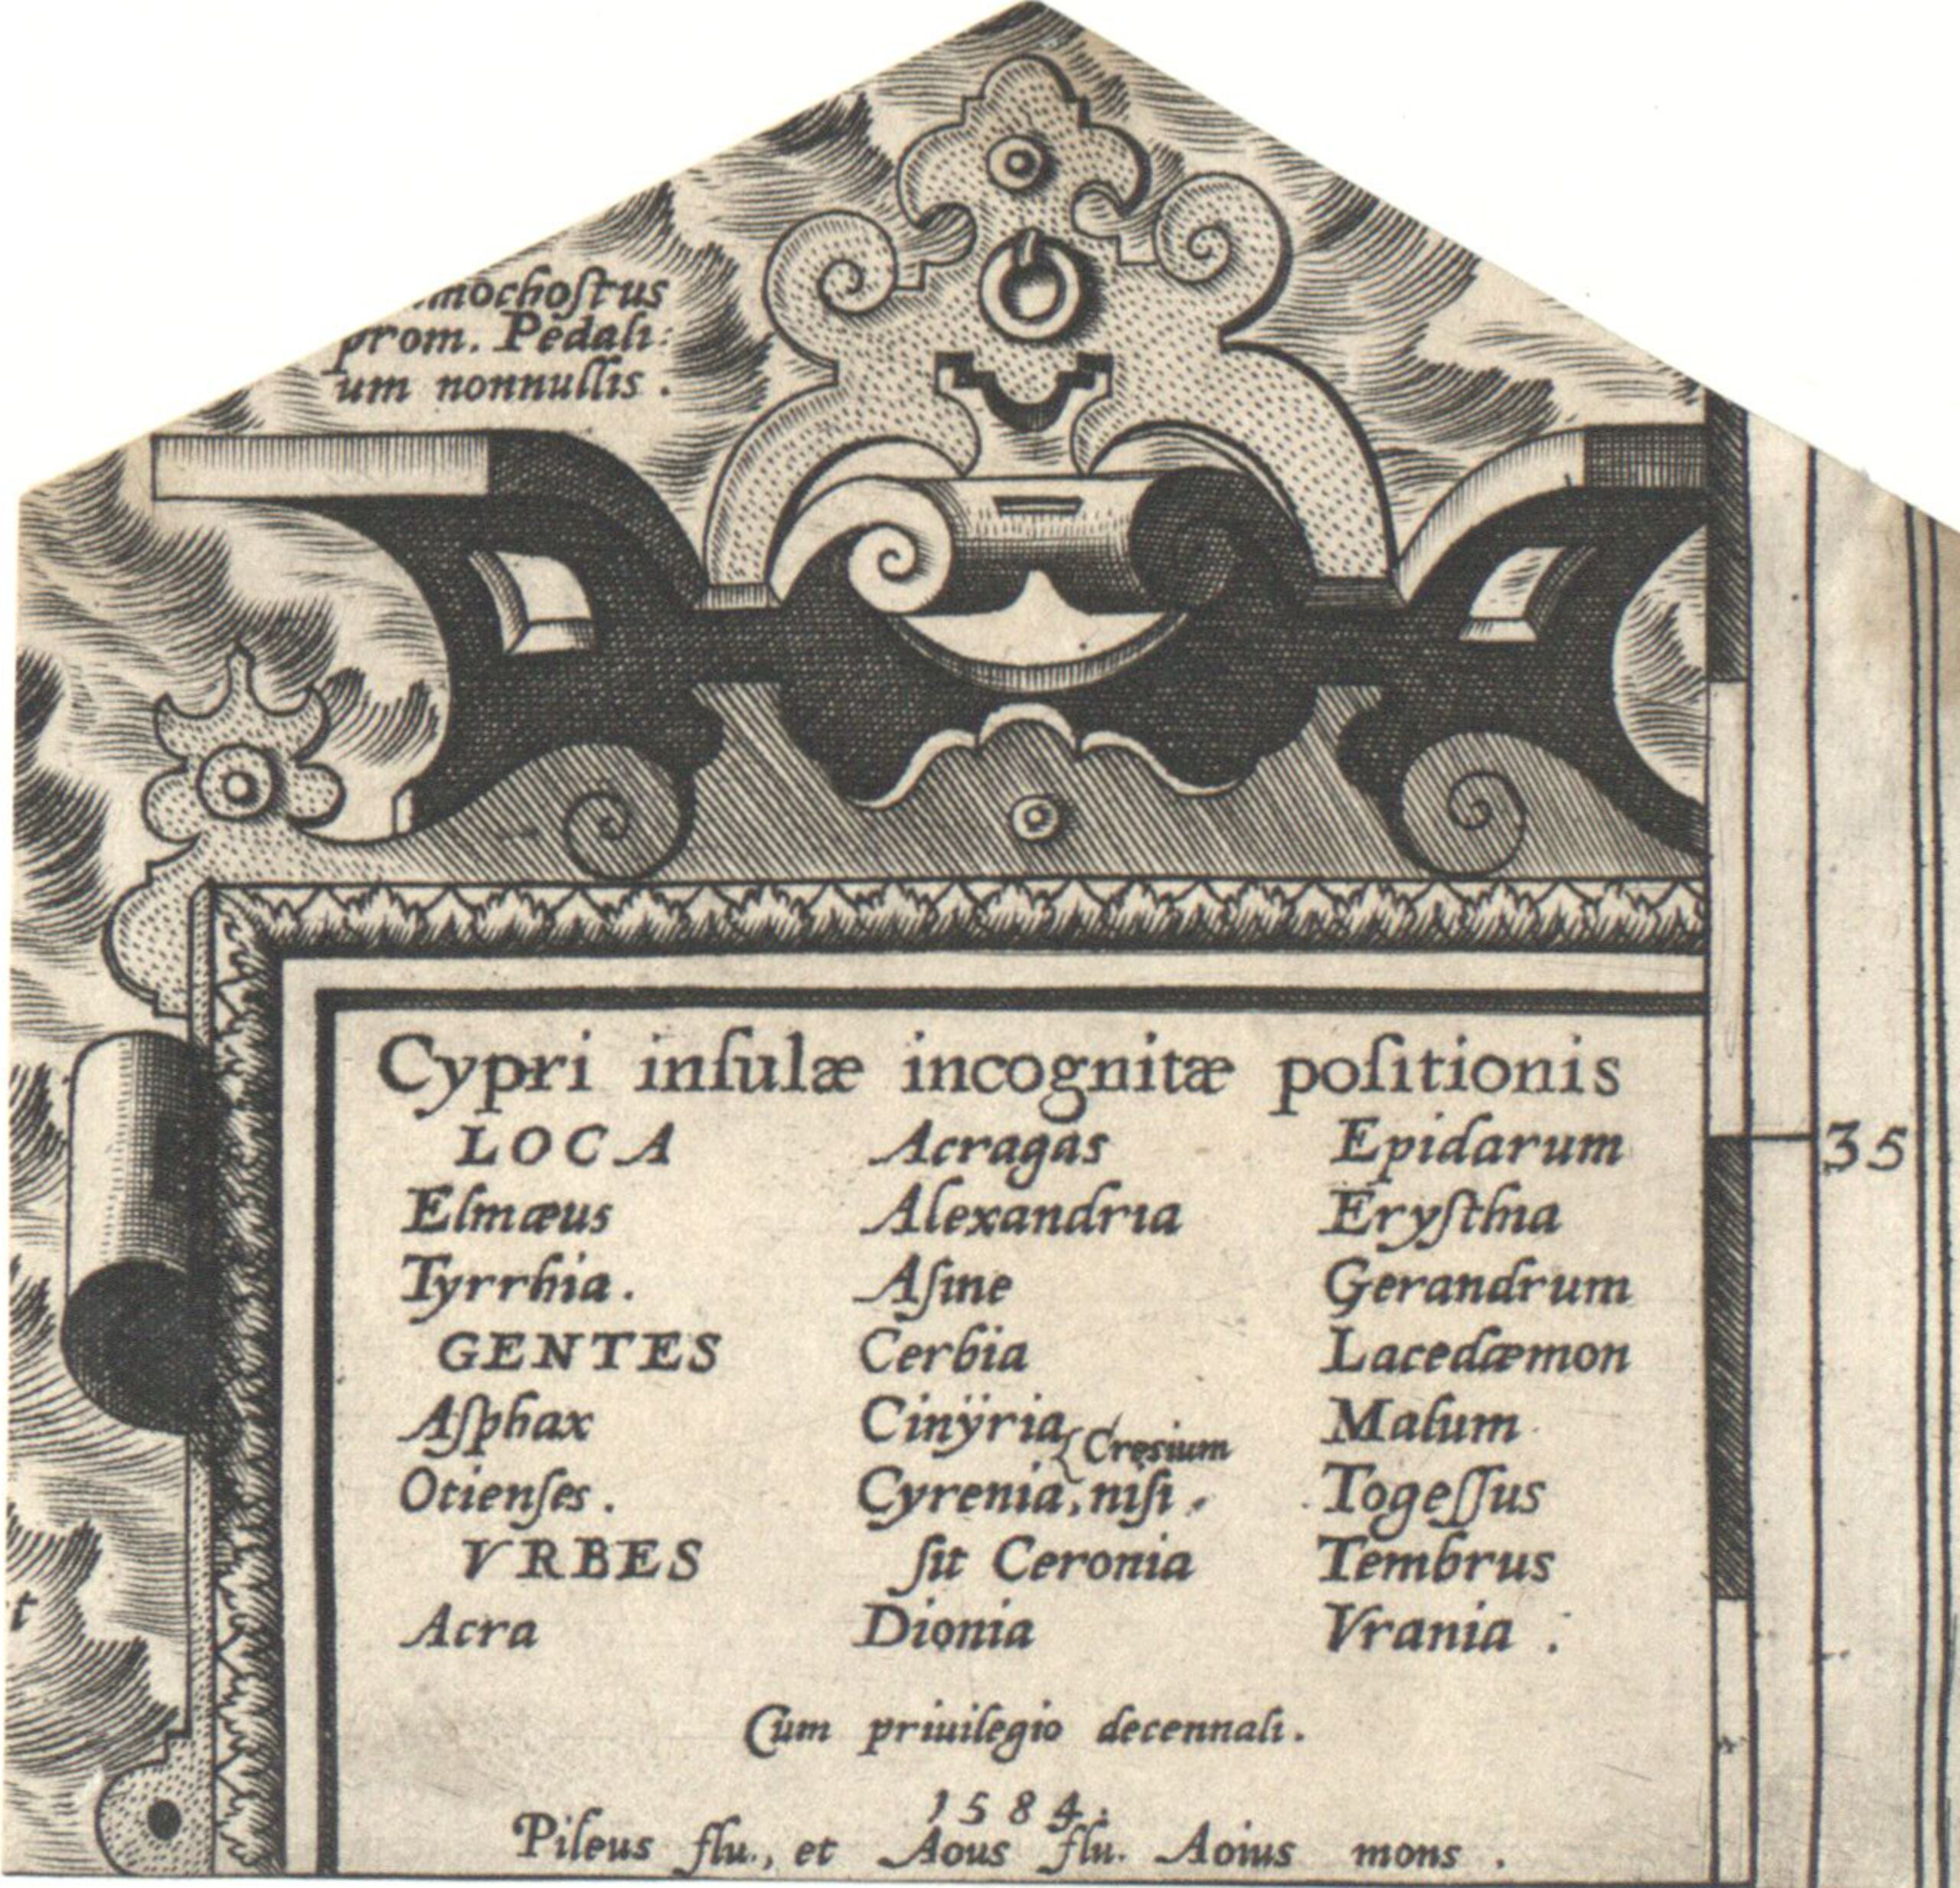 mochoſtus
prom. Pedali:
um nonnullis.
Cypri inſulæ incognitæ poſitionis
LOCA
Elmæus
Tyrrhia.
GENTES
Aſphax
Otienſes.
VRBES
Acra
Acragas
Alexandria
Aſine
Cerbia
Cinÿria
{Cresium
Cyrenia, niſi
ſit Ceronia
Dionia
Epidarum
Eryſthia
Gerandrum
Lacedæmon
Malum
Togeſſus
Tembrus
Vrania.
Cum priuilegio decennali.
1584.
Pileus flu., et Aous flu. Aoius mons.
35
t